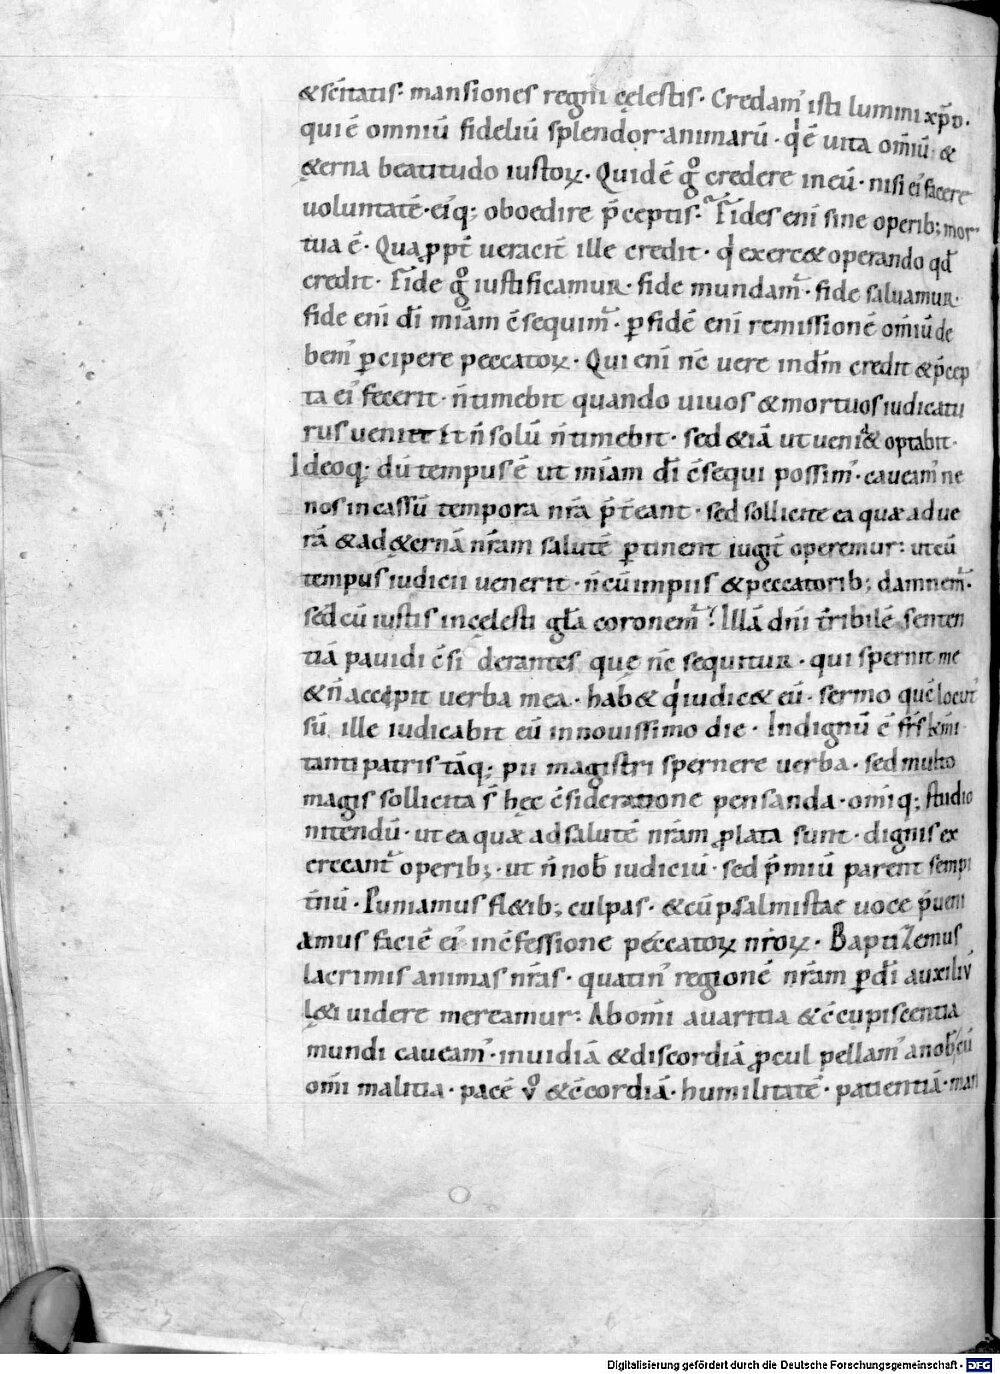 &scītatis· mansiones regni cęlestis· Credam᾽ isti lumini xp̄o·
qui ē omniū fideliū splendor animarū· q̇ ē uita om̄iū· &
&erna beatitudo iustoꝝ· Quid ē gͦ credere in eū· nisi ei᾽ facere
voluntatē· ei᾽q; oboedire p̄ceptis· Fides enī sine operib; mor
tua ē· Quaꝓpt̄ ueracit̄ ille credit· q̇ exerc& operando qđ
credit· Fide gͦ iustificamur· fide mundam᾽· fide saluamur·
fide enī dī mīam c̄sequim᾽· ꝑ fidē enī remissionē om̄iū de
bem᾽ ꝑcipere peccatoꝝ· Qui enī nc̄ uere in dm̄ credit & p̄cep
ta ei᾽ fecerit· n̄ timebit quando uiuos & mortuos iudicatu
rus uenit Et n̄ solū n̄ timebit· sed &iā ut ueniat & optabit·
Ideoq; dū tempus ē ut mīam dī c̄sequi possim᾽· caueam᾽ ne
nos in cassū tempora nr̄a p̄t̄eant· sed sollicite ea quæ ad ue
rā & ad &ernā nr̄am salutē ꝑtinent iugit̄ operemur: ut cū
tempus iudicii uenerit· n̄ cū impiis & peccatorib; damnem᾽·
sed cū iustis in cęlesti gl̄a coronem᾽· Illā dn̄i t̄ribilē senten
tiā pauidi c̄siderantes quę nc̄ sequitur· qui spernit me
& n̄ accipit uerba mea· hab& q̇ iudic& eū· sermo quē locut᾽
sū ille iudicabit eū in nouissimo die· Indignū ē fr̄s km̄i
tanti patris tāq; pii magistri spernere uerba· sed multo
magis sollicita s̄ hęc c̄sideratione pensanda· om̄iq; studio
nitendū· ut ea quæ ad salutē nr̄am ꝓlata sunt· dignis ex
erceant᾽ operib;· ut n̄ nob̄ iudiciū· sed p̄miū parent sempi
t̄nū· Puniamus fl&ib; culpas· & cū psalmistae uoce p̄ueni
amus faciē ei᾽ in c̄fessione peccatoꝝ nr̄oꝝ· Baptizemus
lacrimis animas nr̄as· quatin᾽ regionē nr̄am ꝑ dī auxiliū
l&i uidere mereamur: Ab om̄i auaritia & c̄cupiscentia
mundi caueam᾽· inuidiā & discordiā ꝓcul pellam᾽ a nob̄ cū
om̄i malitia· pacē ůͦ & c̄cordiā· humilitatē· patientiā· man
Digitalisierung gefördert durch die Deutsche Forschungsgemeinschaft - DFG